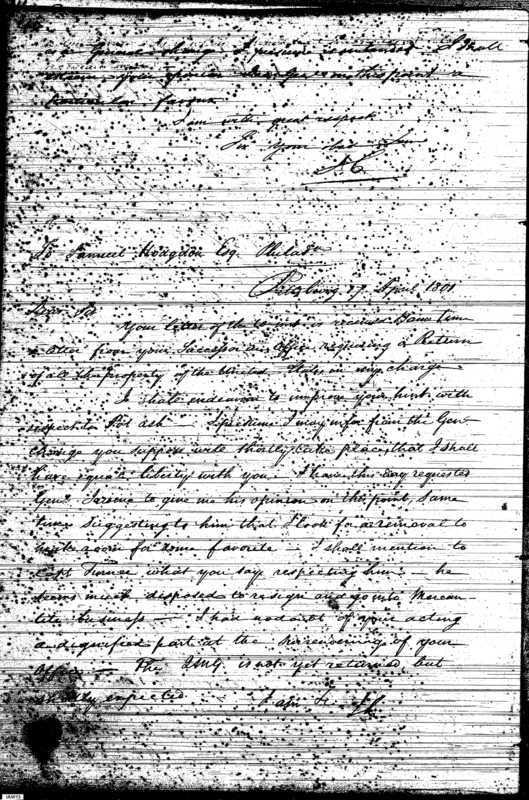 General change I presume I shall
esteem your opinion on this point a
particular favour
I am with great respect
Sir Your
IC
To Samuel Hodgdon Esq. Philada
Pittsburg 17 April 1801
Dear Sir
Your letter of the is received Same time
a letter from your Successor in office requiring a Return
of all the property of the United States in my charge
I shall endeavor to improve your hint with
respect to Pot ash I presume I may infer from the Genl
change you suppose will shortly take place, that I shall
have equal liberty with you. I have this day requested
Genl to give me his opinion on the point, Same
time suggesting to him that I look for a removal to
make room for some favorite. I shall mention to
Capt Turner what you say respecting him. he
seems much disposed to resign and go into Mercan-
tile business I had no doubt of your acting
a dignified part at the surrendering of your
office The QMG. is not yet returned, but
expected I am &c IC
IAW12